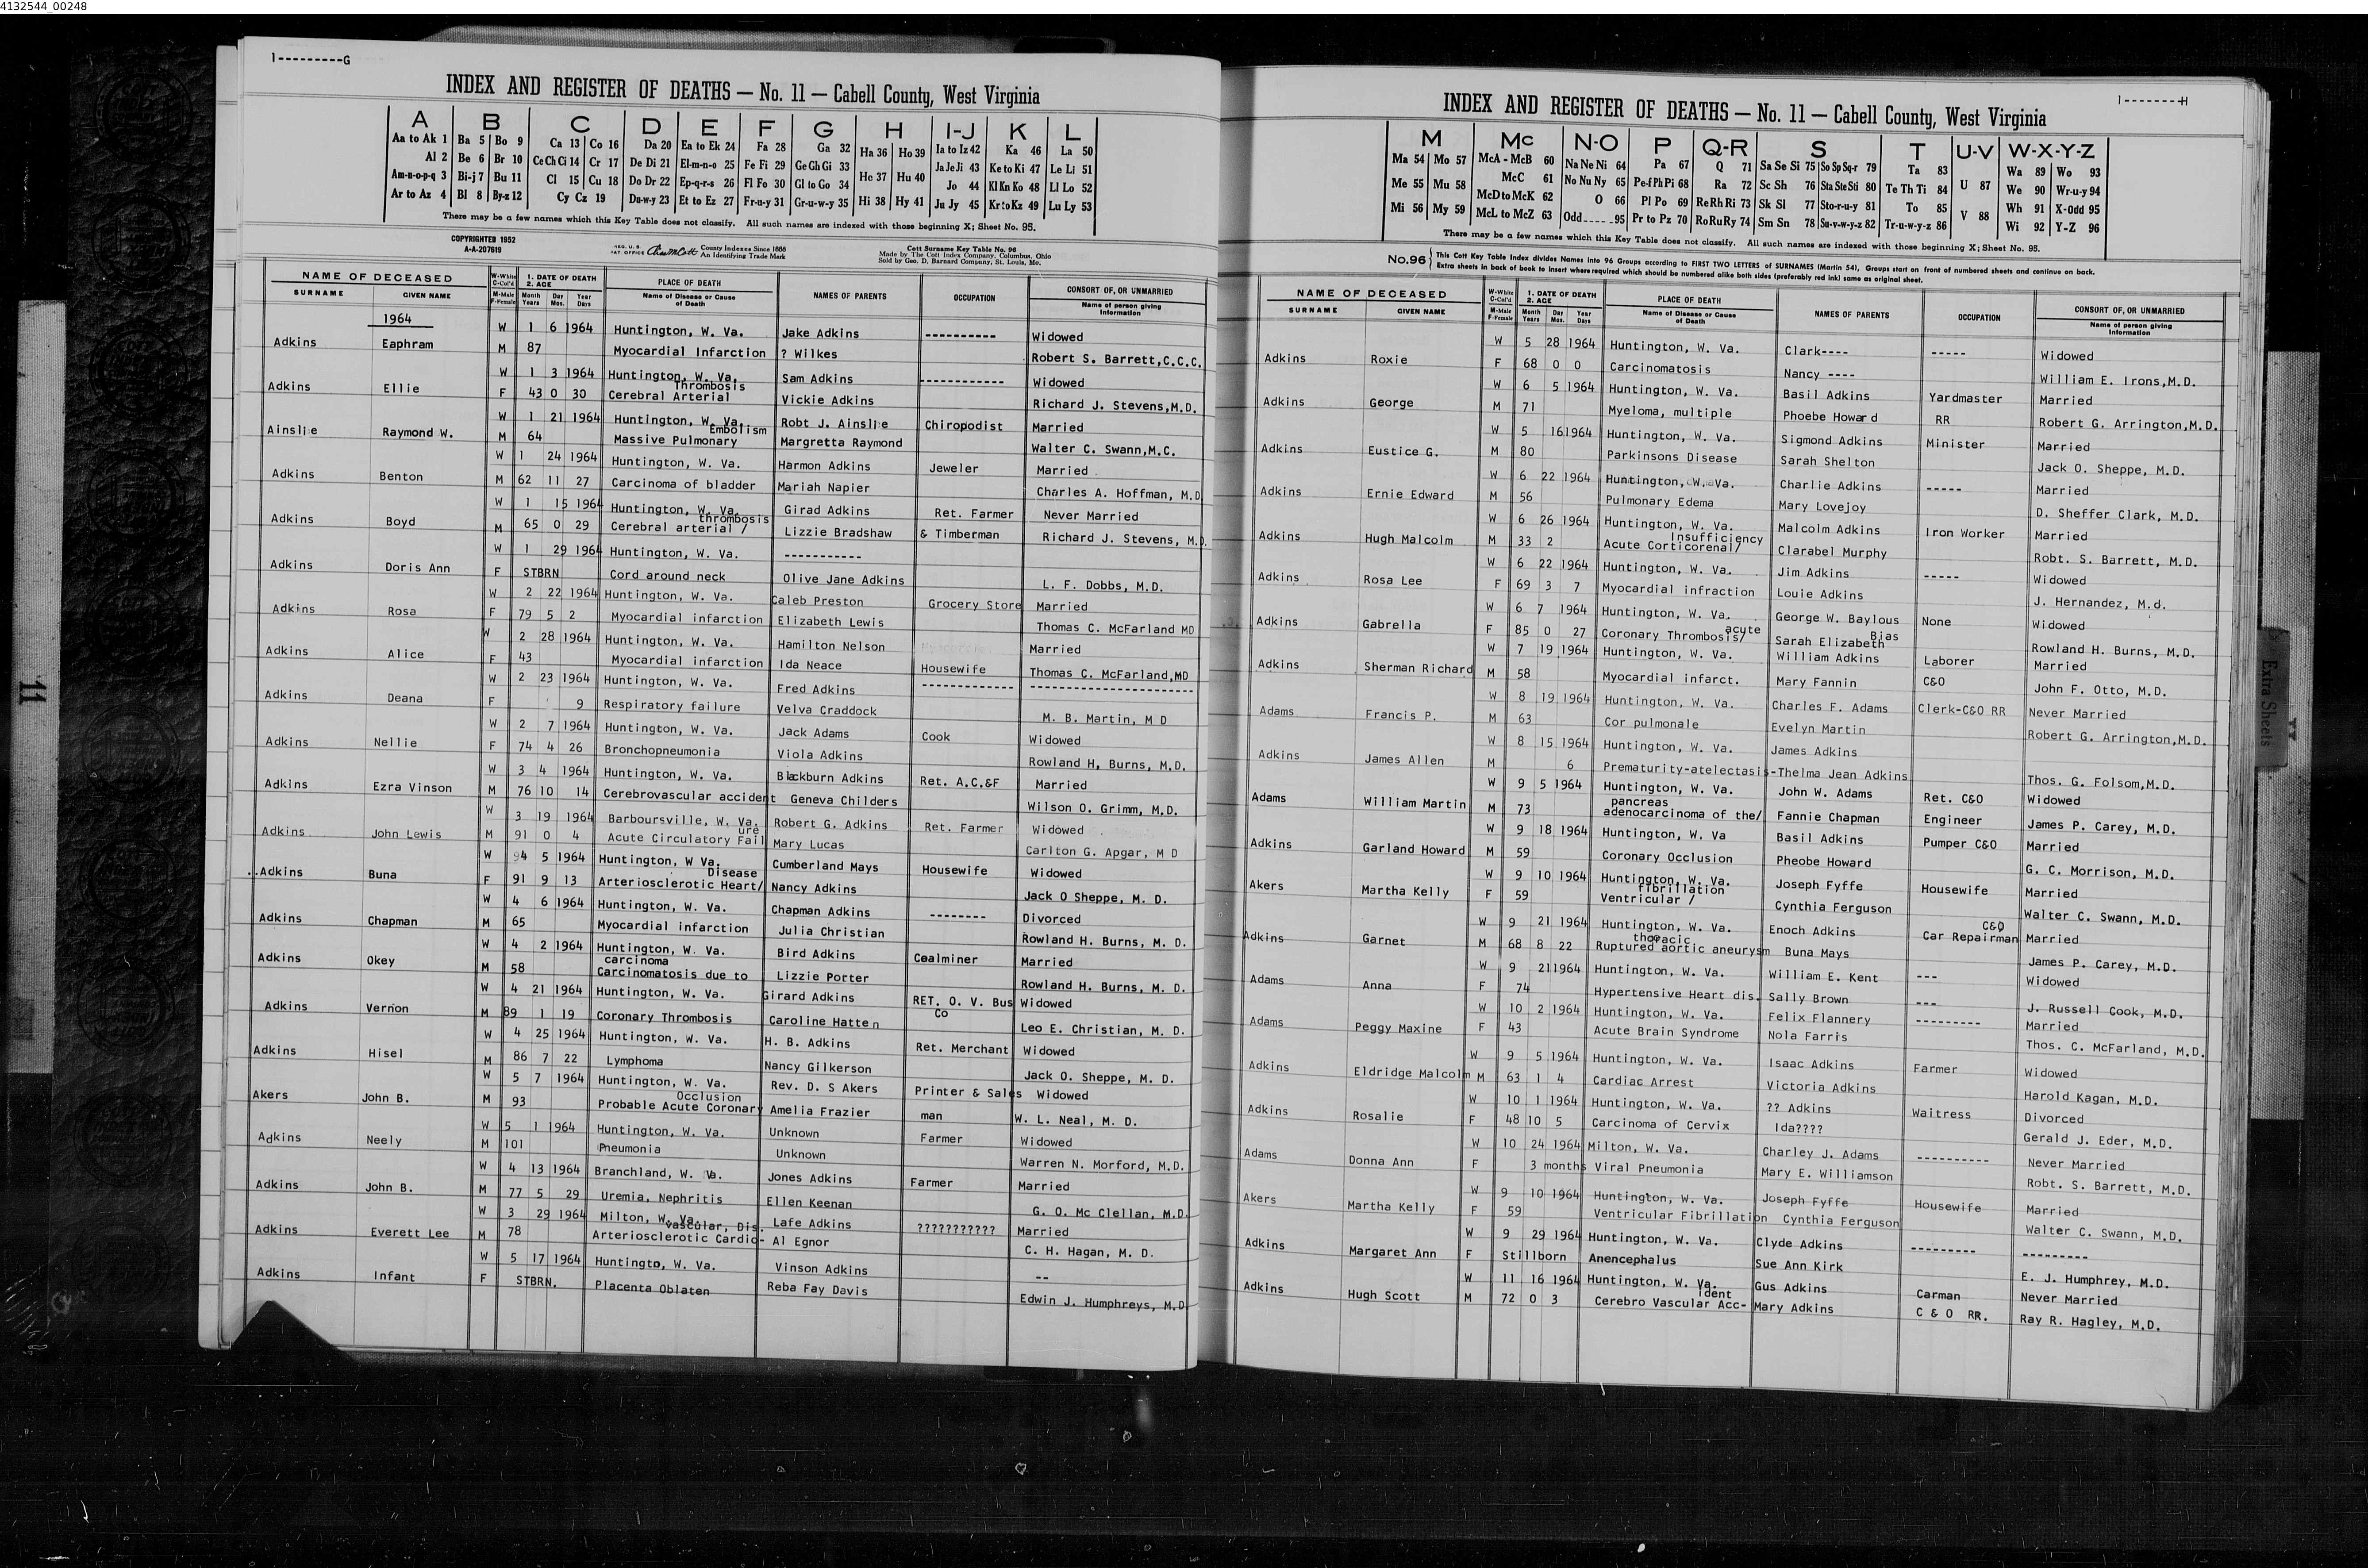 4132544_00248
1---------G
INDEX AND REGISTER OF DEATHS — No. 11 — Cabell County, West Virginia
A B C D E F G H I-J K L
Aa to Ak 1 Ba 5 Bo 9 Ca 13 Co 16 Da 20 Ea to Ek 24 Fa 28 Ga 32 Ha 36 Ho 39 Ia to Iz 42 Ka 46 La 50
Al 2 Be 6 Br 10 Ce Ch Ci 14 Cr 17 De Di 21 El-m-n-o 25 Fe Fi 29 Ge Gh Gi 33 He 37 Hu 40 Ja Je Ji 43 Ke to Ki 47 Le Li 51
Am-n-o-p-q 3 Bi-j 7 Bu 11 Cl 15 Cu 18 Do Dr 22 Ep-q-r-s 26 Fl Fo 30 Gl to Go 34 Hi 38 Hy 41 Jo 44 Kl Kn Ko 48 Ll Lo 52
Ar to Az 4 Bl 8 By-z 12 Cy Cz 19 Du-w-y 23 Et to Ez 27 Fr-u-y 31 Gr-u-w-y 35 Ju Jy 45 Kr to Kz 49 Lu Ly 53
There may be a few names which this Key Table does not classify. All such names are indexed with those beginning X; Sheet No. 95.
COPYRIGHTED 1952
A-A-207619
County Indexes Since 1888
An Identifying Trade Mark
Cott Surname Key Table No. 96
Made by The Cott Index Company, Columbus, Ohio
Sold by Geo. D. Barnard Company, St. Louis, Mo.
NAME OF DECEASED W-White C-Col'd 1. DATE OF DEATH 2. AGE PLACE OF DEATH NAMES OF PARENTS OCCUPATION CONSORT OF, OR UNMARRIED
SURNAME GIVEN NAME M-Male F-Female Month Years Day Mos. Year Days Name of Disease or Cause of Death Name of person giving Information
1964
W 1 6 1964 Huntington, W. Va. Jake Adkins ---------- Widowed
Adkins Eaphram M 87 Myocardial Infarction ? Wilkes Robert S. Barrett,C.C.C.
W 1 3 1964 Huntington, W. Va. Sam Adkins ------------ Widowed
Adkins Ellie F 43 0 30 Cerebral Arterial Thrombosis Vickie Adkins Richard J. Stevens,M.D.
W 1 21 1964 Huntington, W. Va. Robt J. Ainslie Chiropodist Married
Ainslie Raymond W. M 64 Massive Pulmonary Embolism Margretta Raymond Walter C. Swann,M.C.
W 1 24 1964 Huntington, W. Va. Harmon Adkins Jeweler Married
Adkins Benton M 62 11 27 Carcinoma of bladder Mariah Napier Charles A. Hoffman, M.D
W 1 15 1964 Huntington, W. Va. Girad Adkins Ret. Farmer Never Married
Adkins Boyd M 65 0 29 Cerebral arterial / thrombosis Lizzie Bradshaw & Timberman Richard J. Stevens, M.D.
W 1 29 1964 Huntington, W. Va. -----------
Adkins Doris Ann F STBRN Cord around neck Olive Jane Adkins L. F. Dobbs, M.D.
W 2 22 1964 Huntington, W. Va. Caleb Preston Grocery Store Married
Adkins Rosa F 79 5 2 Myocardial infarction Elizabeth Lewis Thomas C. McFarland MD
W 2 28 1964 Huntington, W. Va. Hamilton Nelson Married
Adkins Alice F 43 Myocardial infarction Ida Neace Housewife Thomas C. McFarland,MD
W 2 23 1964 Huntington, W. Va. Fred Adkins ------------- -----------------------
Adkins Deana F 9 Respiratory failure Velva Craddock M. B. Martin, M D
W 2 7 1964 Huntington, W. Va. Jack Adams Cook Widowed
Adkins Nellie F 74 4 26 Bronchopneumonia Viola Adkins Rowland H, Burns, M.D.
W 3 4 1964 Huntington, W. Va. Blackburn Adkins Ret. A.C.&F Married
Adkins Ezra Vinson M 76 10 14 Cerebrovascular accident Geneva Childers Wilson O. Grimm, M.D.
W 3 19 1964 Barboursville, W. Va. Robert G. Adkins Ret. Farmer Widowed
Adkins John Lewis M 91 0 4 Acute Circulatory Fail ure Mary Lucas Carlton G. Apgar, M D
W 94 5 1964 Huntington, W Va. Cumberland Mays Housewife Widowed
..Adkins Buna F 91 9 13 Arteriosclerotic Heart/ Disease Nancy Adkins Jack O Sheppe, M. D.
W 4 6 1964 Huntington, W. Va. Chapman Adkins -------- Divorced
Adkins Chapman M 65 Myocardial infarction Julia Christian Rowland H. Burns, M. D.
W 4 2 1964 Huntington, W. Va. Bird Adkins Coalminer Married
Adkins Okey M 58 Carcinomatosis due to carcinoma Lizzie Porter Rowland H. Burns, M. D.
W 4 21 1964 Huntington, W. Va. Girard Adkins RET. O. V. Bus Widowed
Adkins Vernon M 89 1 19 Coronary Thrombosis Caroline Hatten Co Leo E. Christian, M. D.
W 4 25 1964 Huntington, W. Va. H. B. Adkins Ret. Merchant Widowed
Adkins Hisel M 86 7 22 Lymphoma Nancy Gilkerson Jack O. Sheppe, M. D.
W 5 7 1964 Huntington, W. Va. Rev. D. S Akers Printer & Sales Widowed
Akers John B. M 93 Probable Acute Coronary Occlusion Amelia Frazier man W. L. Neal, M. D.
W 5 1 1964 Huntington, W. Va. Unknown Farmer Widowed
Adkins Neely M 101 Pneumonia Unknown Warren N. Morford, M.D.
W 4 13 1964 Branchland, W. Va. Jones Adkins Farmer Married
Adkins John B. M 77 5 29 Uremia, Nephritis Ellen Keenan G. O. Mc Clellan, M.D.
W 3 29 1964 Milton, W. Va. Lafe Adkins ??????????? Married
Adkins Everett Lee M 78 Arteriosclerotic Cardio- vascular, Dis. Al Egnor C. H. Hagan, M. D.
W 5 17 1964 Huntingto, W. Va. Vinson Adkins --
Adkins Infant F STBRN. Placenta Oblaten Reba Fay Davis Edwin J. Humphreys, M.D.
1--------H
INDEX AND REGISTER OF DEATHS — No. 11 — Cabell County, West Virginia
M Mc N-O P Q-R S T U-V W-X-Y-Z
Ma 54 Mo 57 McA - McB 60 Na Ne Ni 64 Pa 67 Q 71 Sa Se Si 75 So Sp Sq-r 79 Ta 83 U 87 Wa 89 Wo 93
Me 55 Mu 58 McC 61 No Nu Ny 65 Pe-f Ph Pi 68 Ra 72 Sc Sh 76 Sta Ste Sti 80 Te Th Ti 84 V 88 We 90 Wr-u-y 94
Mi 56 My 59 McD to McK 62 O 66 Pl Po 69 Re Rh Ri 73 Sk Sl 77 Sto-r-u-y 81 To 85 Wh 91 X-Odd 95
McL to McZ 63 Odd 95 Pr to Pz 70 Ro Ru Ry 74 Sm Sn 78 Su-v-w-y-z 82 Tr-u-w-y-z 86 Wi 92 Y-Z 96
There may be a few names which this Key Table does not classify. All such names are indexed with those beginning X; Sheet No. 95.
No.96 This Cott Key Table Index divides Names into 96 Groups according to FIRST TWO LETTERS of SURNAMES (Martin 54), Groups start on front of numbered sheets and continue on back.
Extra sheets in back of book to insert where required which should be numbered alike both sides (preferably red ink) same as original sheet.
NAME OF DECEASED W-White C-Col'd 1. DATE OF DEATH 2. AGE PLACE OF DEATH NAMES OF PARENTS OCCUPATION CONSORT OF, OR UNMARRIED
SURNAME GIVEN NAME M-Male F-Female Month Years Day Mos. Year Days Name of Disease or Cause of Death Name of person giving Information
W 5 28 1964 Huntington, W. Va. Clark---- ----- Widowed
Adkins Roxie F 68 0 0 Carcinomatosis Nancy ---- William E. Irons,M.D.
W 6 5 1964 Huntington, W. Va. Basil Adkins Yardmaster Married
Adkins George M 71 Myeloma, multiple Phoebe Howard RR Robert G. Arrington,M.D.
W 5 16 1964 Huntington, W. Va. Sigmond Adkins Minister Married
Adkins Eustice G. M 80 Parkinsons Disease Sarah Shelton Jack O. Sheppe, M.D.
W 6 22 1964 Huntington, W. Va. Charlie Adkins ----- Married
Adkins Ernie Edward M 56 Pulmonary Edema Mary Lovejoy D. Sheffer Clark, M.D.
W 6 26 1964 Huntington, W. Va. Malcolm Adkins Iron Worker Married
Adkins Hugh Malcolm M 33 2 Acute Corticorenal/ Insufficiency Clarabel Murphy Robt. S. Barrett, M.D.
W 6 22 1964 Huntington, W. Va. Jim Adkins ----- Widowed
Adkins Rosa Lee F 69 3 7 Myocardial infraction Louie Adkins J. Hernandez, M.d.
W 6 7 1964 Huntington, W. Va. George W. Baylous None Widowed
Adkins Gabrella F 85 0 27 Coronary Thrombosis/ acute Sarah Elizabeth Bias Rowland H. Burns, M.D.
W 7 19 1964 Huntington, W. Va. William Adkins Laborer Married
Adkins Sherman Richard M 58 Myocardial infarct. Mary Fannin C&O John F. Otto, M.D.
W 8 19 1964 Huntington, W. Va. Charles F. Adams Clerk-C&O RR Never Married
Adams Francis P. M 63 Cor pulmonale Evelyn Martin Robert G. Arrington,M.D.
W 8 15 1964 Huntington, W. Va. James Adkins
Adkins James Allen M 6 Prematurity-atelectasis-Thelma Jean Adkins Thos. G. Folsom,M.D.
W 9 5 1964 Huntington, W. Va. John W. Adams Ret. C&O Widowed
Adams William Martin M 73 adenocarcinoma of the/ pancreas Fannie Chapman Engineer James P. Carey, M.D.
W 9 18 1964 Huntington, W. Va Basil Adkins Pumper C&O Married
Adkins Garland Howard M 59 Coronary Occlusion Pheobe Howard G. C. Morrison, M.D.
W 9 10 1964 Huntington, W. Va. Joseph Fyffe Housewife Married
Akers Martha Kelly F 59 Ventricular / fibrillation Cynthia Ferguson Walter C. Swann, M.D.
W 9 21 1964 Huntington, W. Va. Enoch Adkins C&O Car Repairman Married
Adkins Garnet M 68 8 22 Ruptured thoracic aortic aneurysm Buna Mays James P. Carey, M.D.
W 9 21 1964 Huntington, W. Va. William E. Kent --- Widowed
Adams Anna F 74 Hypertensive Heart dis. Sally Brown --- J. Russell Cook, M.D.
W 10 2 1964 Huntington, W. Va. Felix Flannery --------- Married
Adams Peggy Maxine F 43 Acute Brain Syndrome Nola Farris Thos. C. McFarland, M.D.
W 9 5 1964 Huntington, W. Va. Isaac Adkins Farmer Widowed
Adkins Eldridge Malcolm M 63 1 4 Cardiac Arrest Victoria Adkins Harold Kagan, M.D.
W 10 1 1964 Huntington, W. Va. ?? Adkins Waitress Divorced
Adkins Rosalie F 48 10 5 Carcinoma of Cervix Ida???? Gerald J. Eder, M.D.
W 10 24 1964 Milton, W. Va. Charley J. Adams ---------- Never Married
Adams Donna Ann F 3 months Viral Pneumonia Mary E. Williamson Robt. S. Barrett, M.D.
W 9 10 1964 Huntington, W. Va. Joseph Fyffe Housewife Married
Akers Martha Kelly F 59 Ventricular Fibrillation Cynthia Ferguson Walter C. Swann, M.D.
W 9 29 1964 Huntington, W. Va. Clyde Adkins --------- ---------
Adkins Margaret Ann F Stillborn Anencephalus Sue Ann Kirk E. J. Humphrey, M.D.
W 11 16 1964 Huntington, W. Va. Gus Adkins Carman Never Married
Adkins Hugh Scott M 72 0 3 Cerebro Vascular Acc- ident Mary Adkins C & O RR. Ray R. Hagley, M.D.
Extra Sheets
11